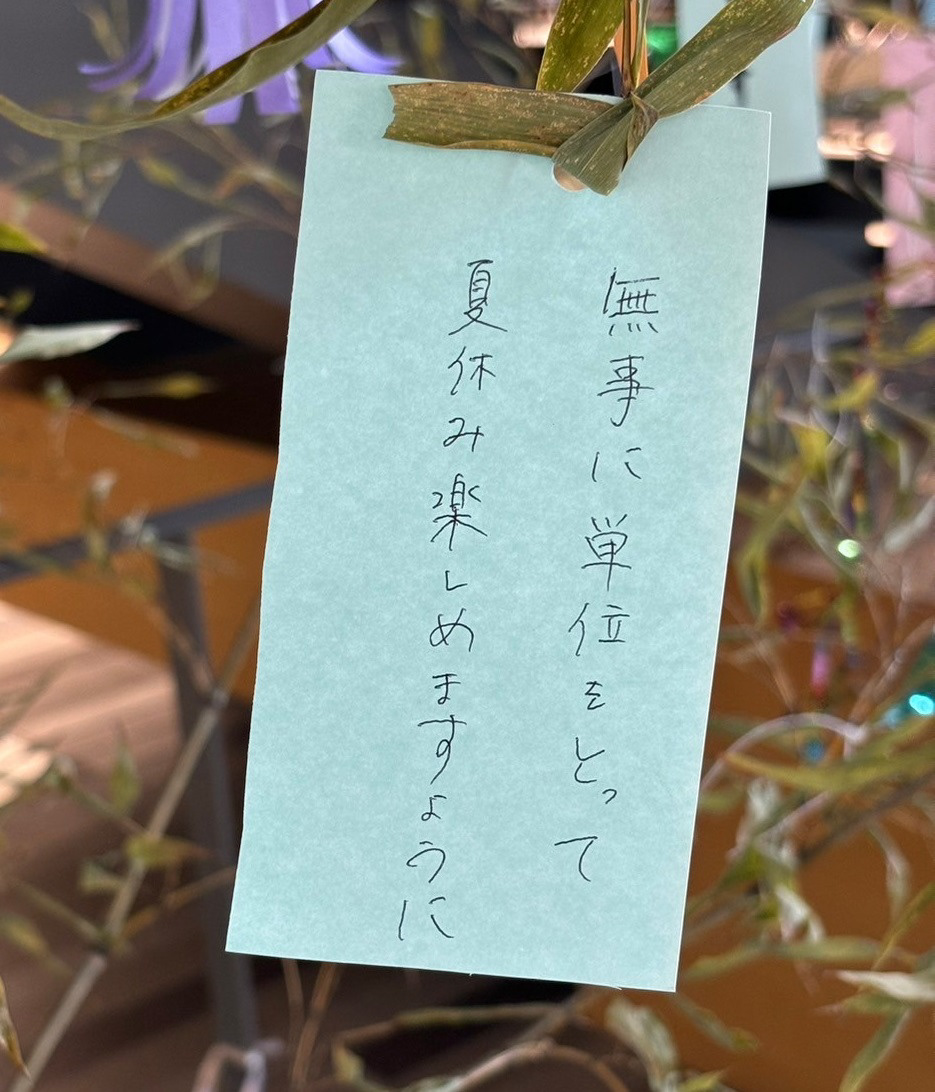 無事に単位をとって
夏休み楽しめますように